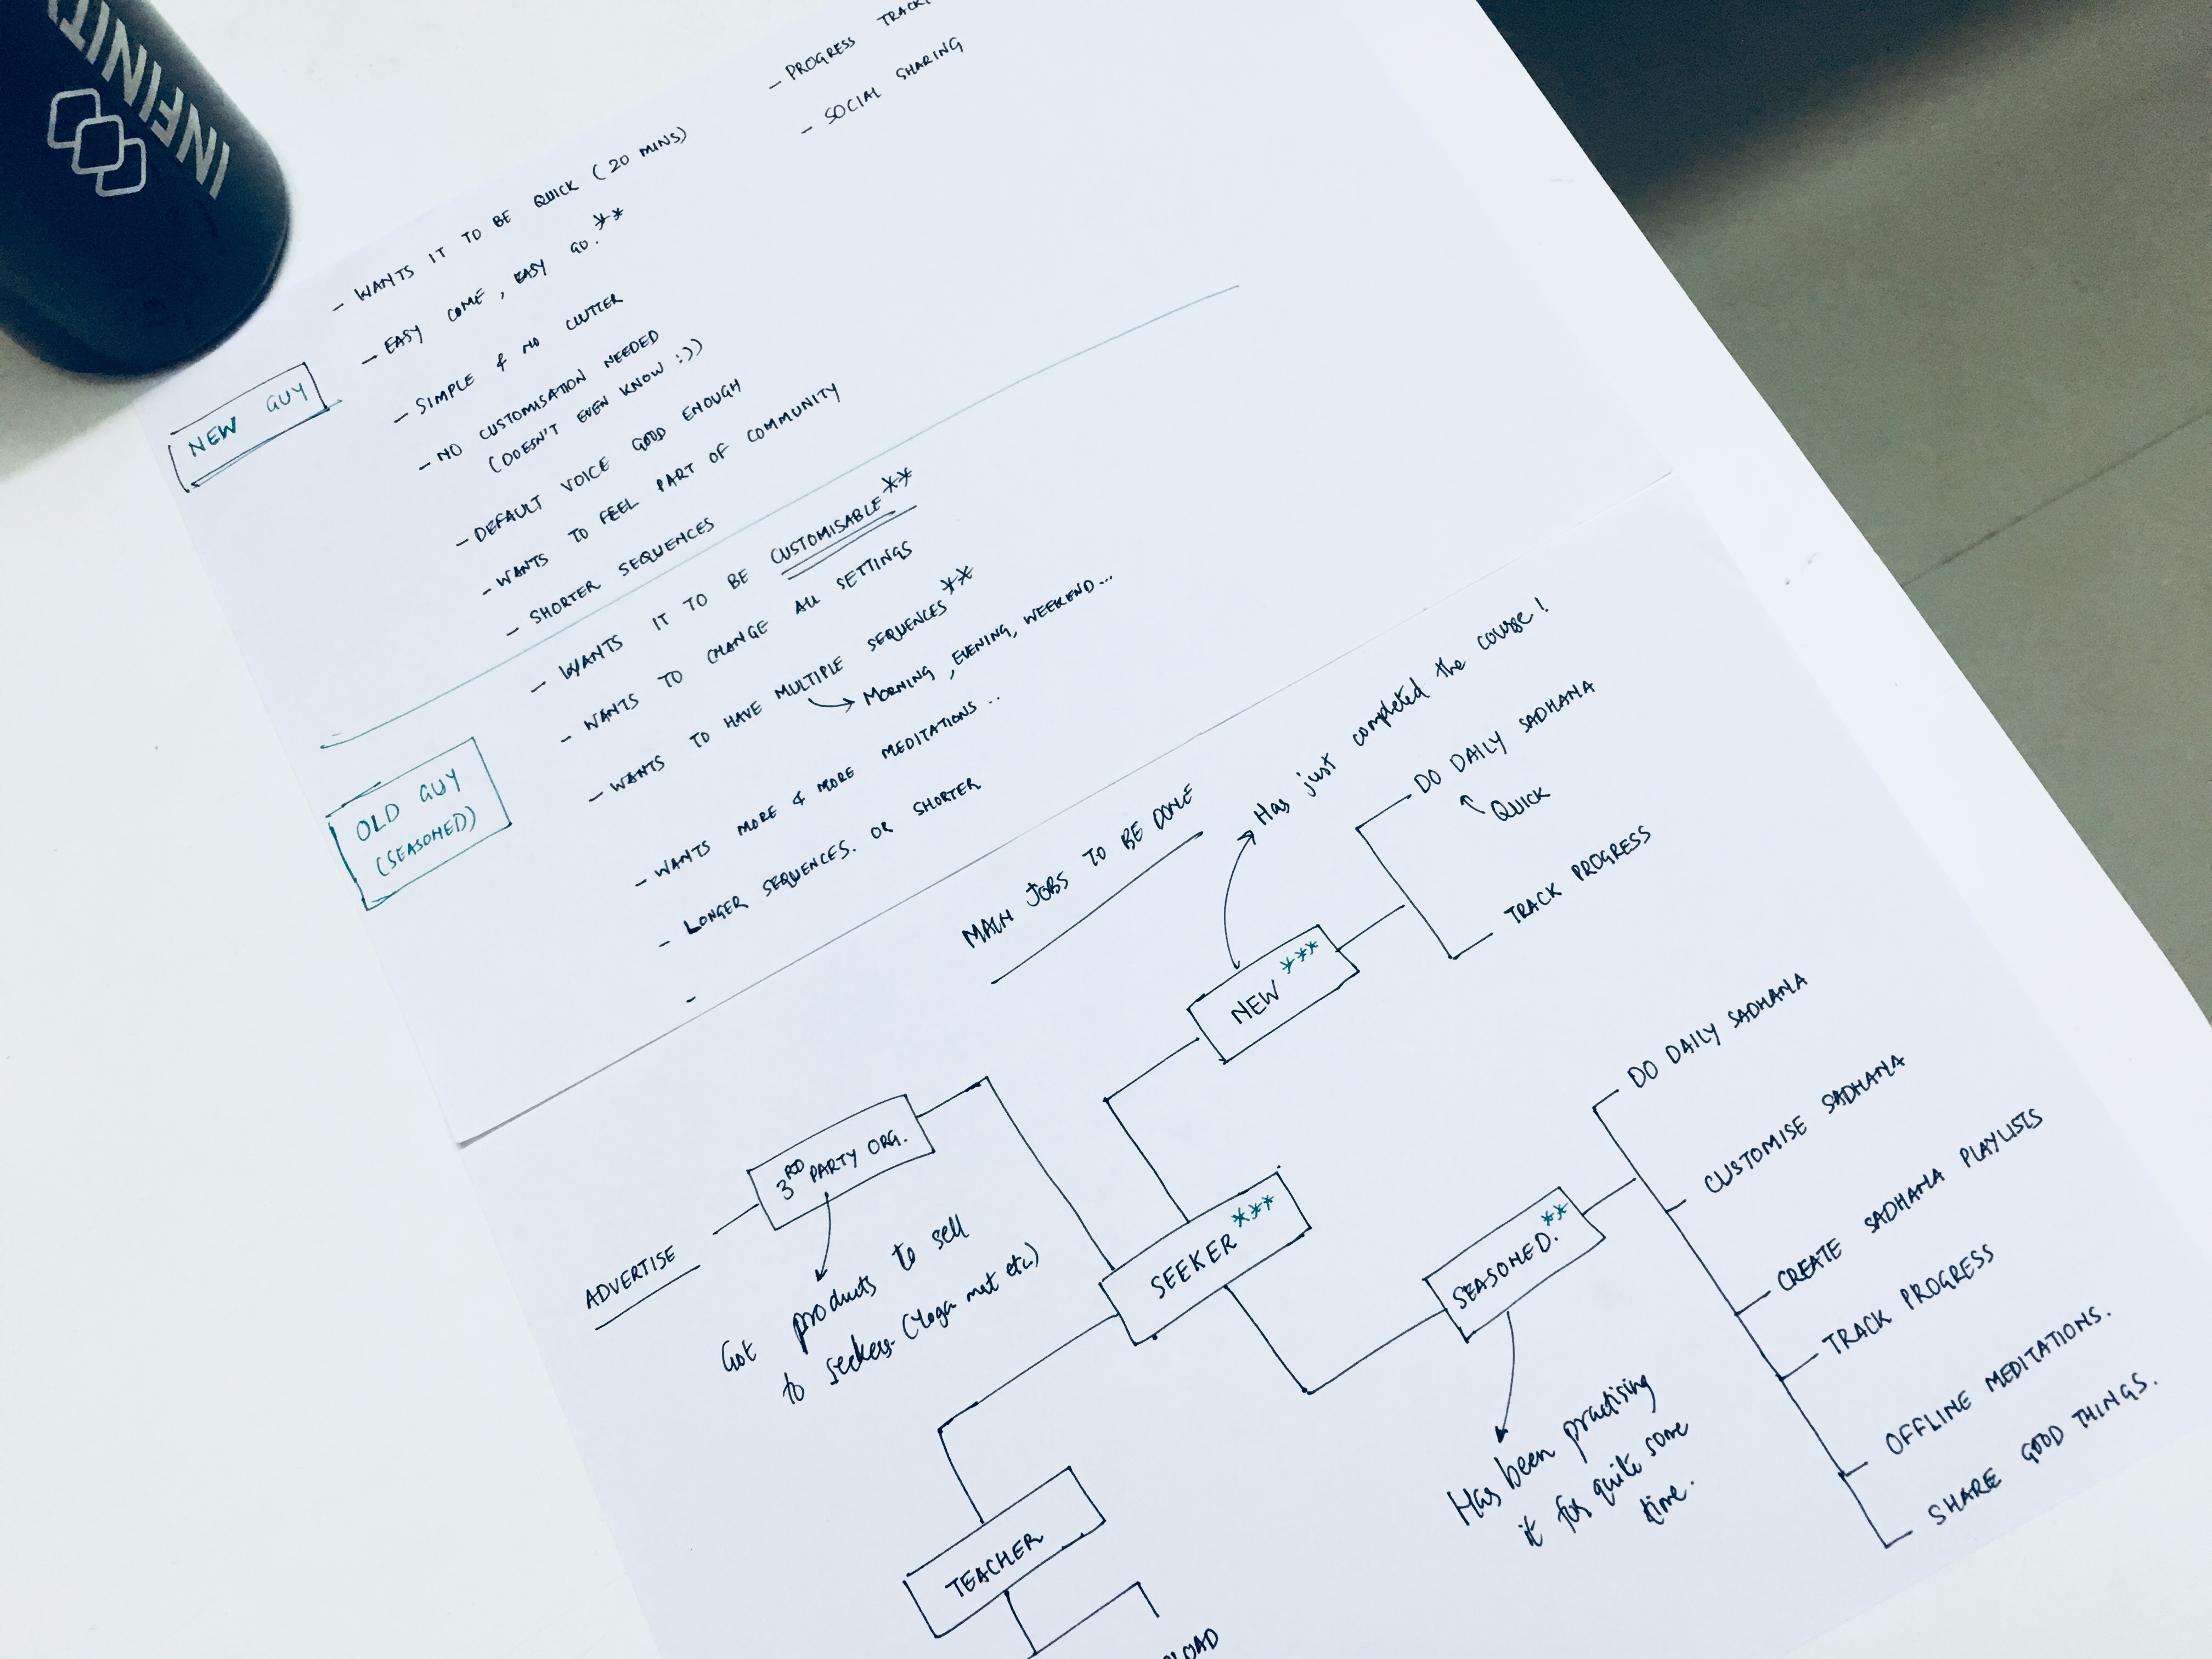 INFINIT
- PROGRESS
- SOCIAL SHARING
NEW GUY
- WANTS IT TO BE QUICK (20 MINS)
- EASY COME, EASY GO.**
- SIMPLE & NO CLUTTER
- NO CUSTOMISATION NEEDED
(DOESN'T EVEN KNOW :))
- DEFAULT VOICE GOOD ENOUGH
- WANTS TO FEEL PART OF COMMUNITY
- SHORTER SEQUENCES
OLD GUY
(SEASONED)
- WANTS IT TO BE CUSTOMISABLE**
- WANTS TO CHANGE ALL SETTINGS
- WANTS TO HAVE MULTIPLE SEQUENCES**
MORNING, EVENING, WEEKEND...
- WANTS MORE & MORE MEDITATIONS ..
- LONGER SEQUENCES. OR SHORTER
-
MAIN JOBS TO BE DONE
Has just completed the course!
NEW ***
DO DAILY SADHANA
QUICK
TRACK PROGRESS
3RD PARTY ORG.
ADVERTISE
Got products to sell
to seekers (Yoga mat etc)
SEEKER ***
SEASONED. **
Has been practising
it for quite some
time.
DO DAILY SADHANA
CUSTOMISE SADHANA
CREATE SADHANA PLAYLISTS
TRACK PROGRESS
OFFLINE MEDITATIONS.
SHARE GOOD THINGS.
TEACHER